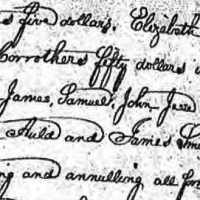 s five dollars. Elizabeth
Corrothers fifty dollars
James, Samuel, John Jesse
Auld and James Sm
ing and annulling all for